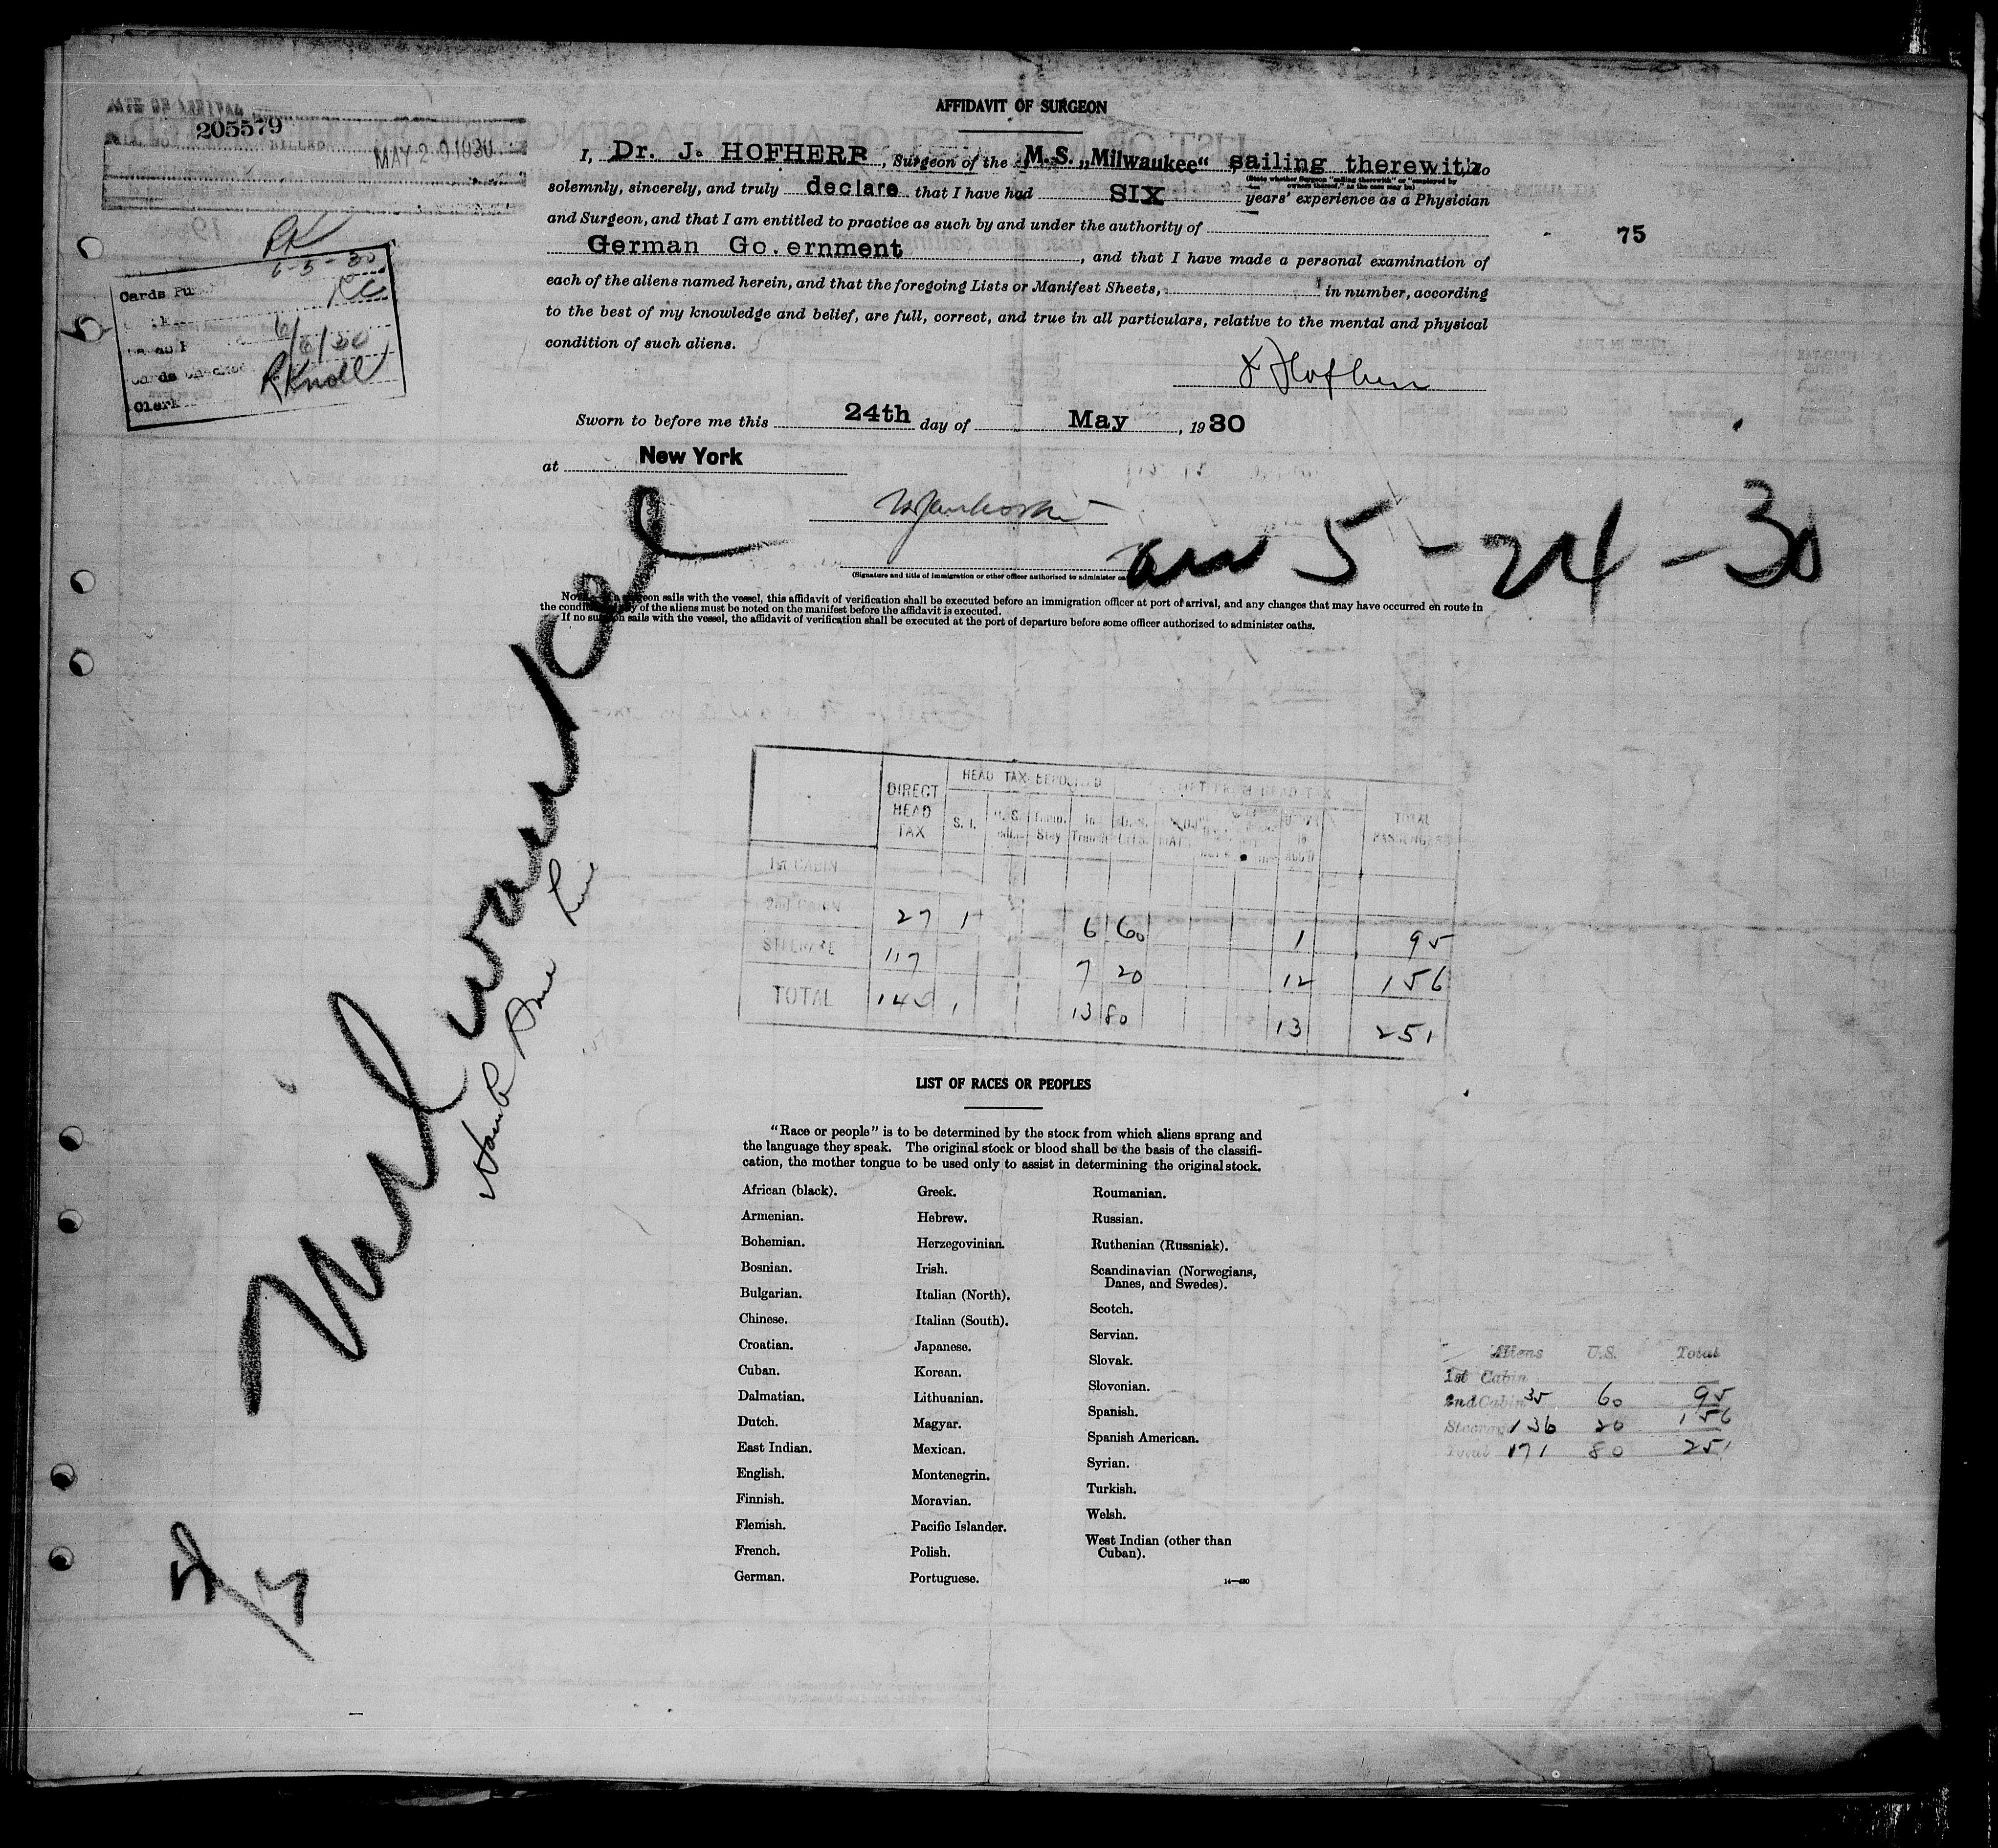 AFFIDAVIT OF SURGEON
205579
MAY 29 1930
I, Dr. J. HOFHERR, Surgeon of the M.S. „Milwaukee“ sailing therewith, do
(State whether Surgeon "sailing therewith" or "employed by
owners thereof," as the case may be)
solemnly, sincerely, and truly declare that I have had SIX years' experience as a Physician
and Surgeon, and that I am entitled to practice as such by and under the authority of
75
German Go.ernment, and that I have made a personal examination of
each of the aliens named herein, and that the foregoing Lists or Manifest Sheets, in number, according
to the best of my knowledge and belief, are full, correct, and true in all particulars, relative to the mental and physical
condition of such aliens.
RK
6-5-30
Cards Pu
6/6/30
Cards Checked
Clerk RKnoll
J Hofherr
Sworn to before me this 24th day of May, 1930
at New York
5-24-30
(Signature and title of immigration or other officer authorized to administer
sails with the vessel, this affidavit of verification shall be executed before an immigration officer at port of arrival, and any changes that may have occurred en route in
the of the aliens must be noted on the manifest before the affidavit is executed.
If no surgeon sails with the vessel, the affidavit of verification shall be executed at the port of departure before some officer authorized to administer oaths.
Milwaukee
Hamb Ame Line
DIRECT HEAD TAX HEAD TAX DEPOSITED HEAD TAX TOTAL PASSENGERS
S. I. Temp. Stay In Transit
1st CABIN
2nd CABIN 27 1 6 60 1 95
STEERAGE 117 7 20 12 156
TOTAL 144 1 13 80 13 251
LIST OF RACES OR PEOPLES
"Race or people" is to be determined by the stock from which aliens sprang and
the language they speak. The original stock or blood shall be the basis of the classifi-
cation, the mother tongue to be used only to assist in determining the original stock.
African (black).
Armenian.
Bohemian.
Bosnian.
Bulgarian.
Chinese.
Croatian.
Cuban.
Dalmatian.
Dutch.
East Indian.
English.
Finnish.
Flemish.
French.
German.
Greek.
Hebrew.
Herzegovinian.
Irish.
Italian (North).
Italian (South).
Japanese.
Korean.
Lithuanian.
Magyar.
Mexican.
Montenegrin.
Moravian.
Pacific Islander.
Polish.
Portuguese.
Roumanian.
Russian.
Ruthenian (Russniak).
Scandinavian (Norwegians,
Danes, and Swedes).
Scotch.
Servian.
Slovak.
Slovenian.
Spanish.
Spanish American.
Syrian.
Turkish.
Welsh.
West Indian (other than
Cuban).
14—430
Aliens U.S. Total
1st Cabin
2nd Cabin 35 60 95
Steerage 136 20 156
Total 171 80 251